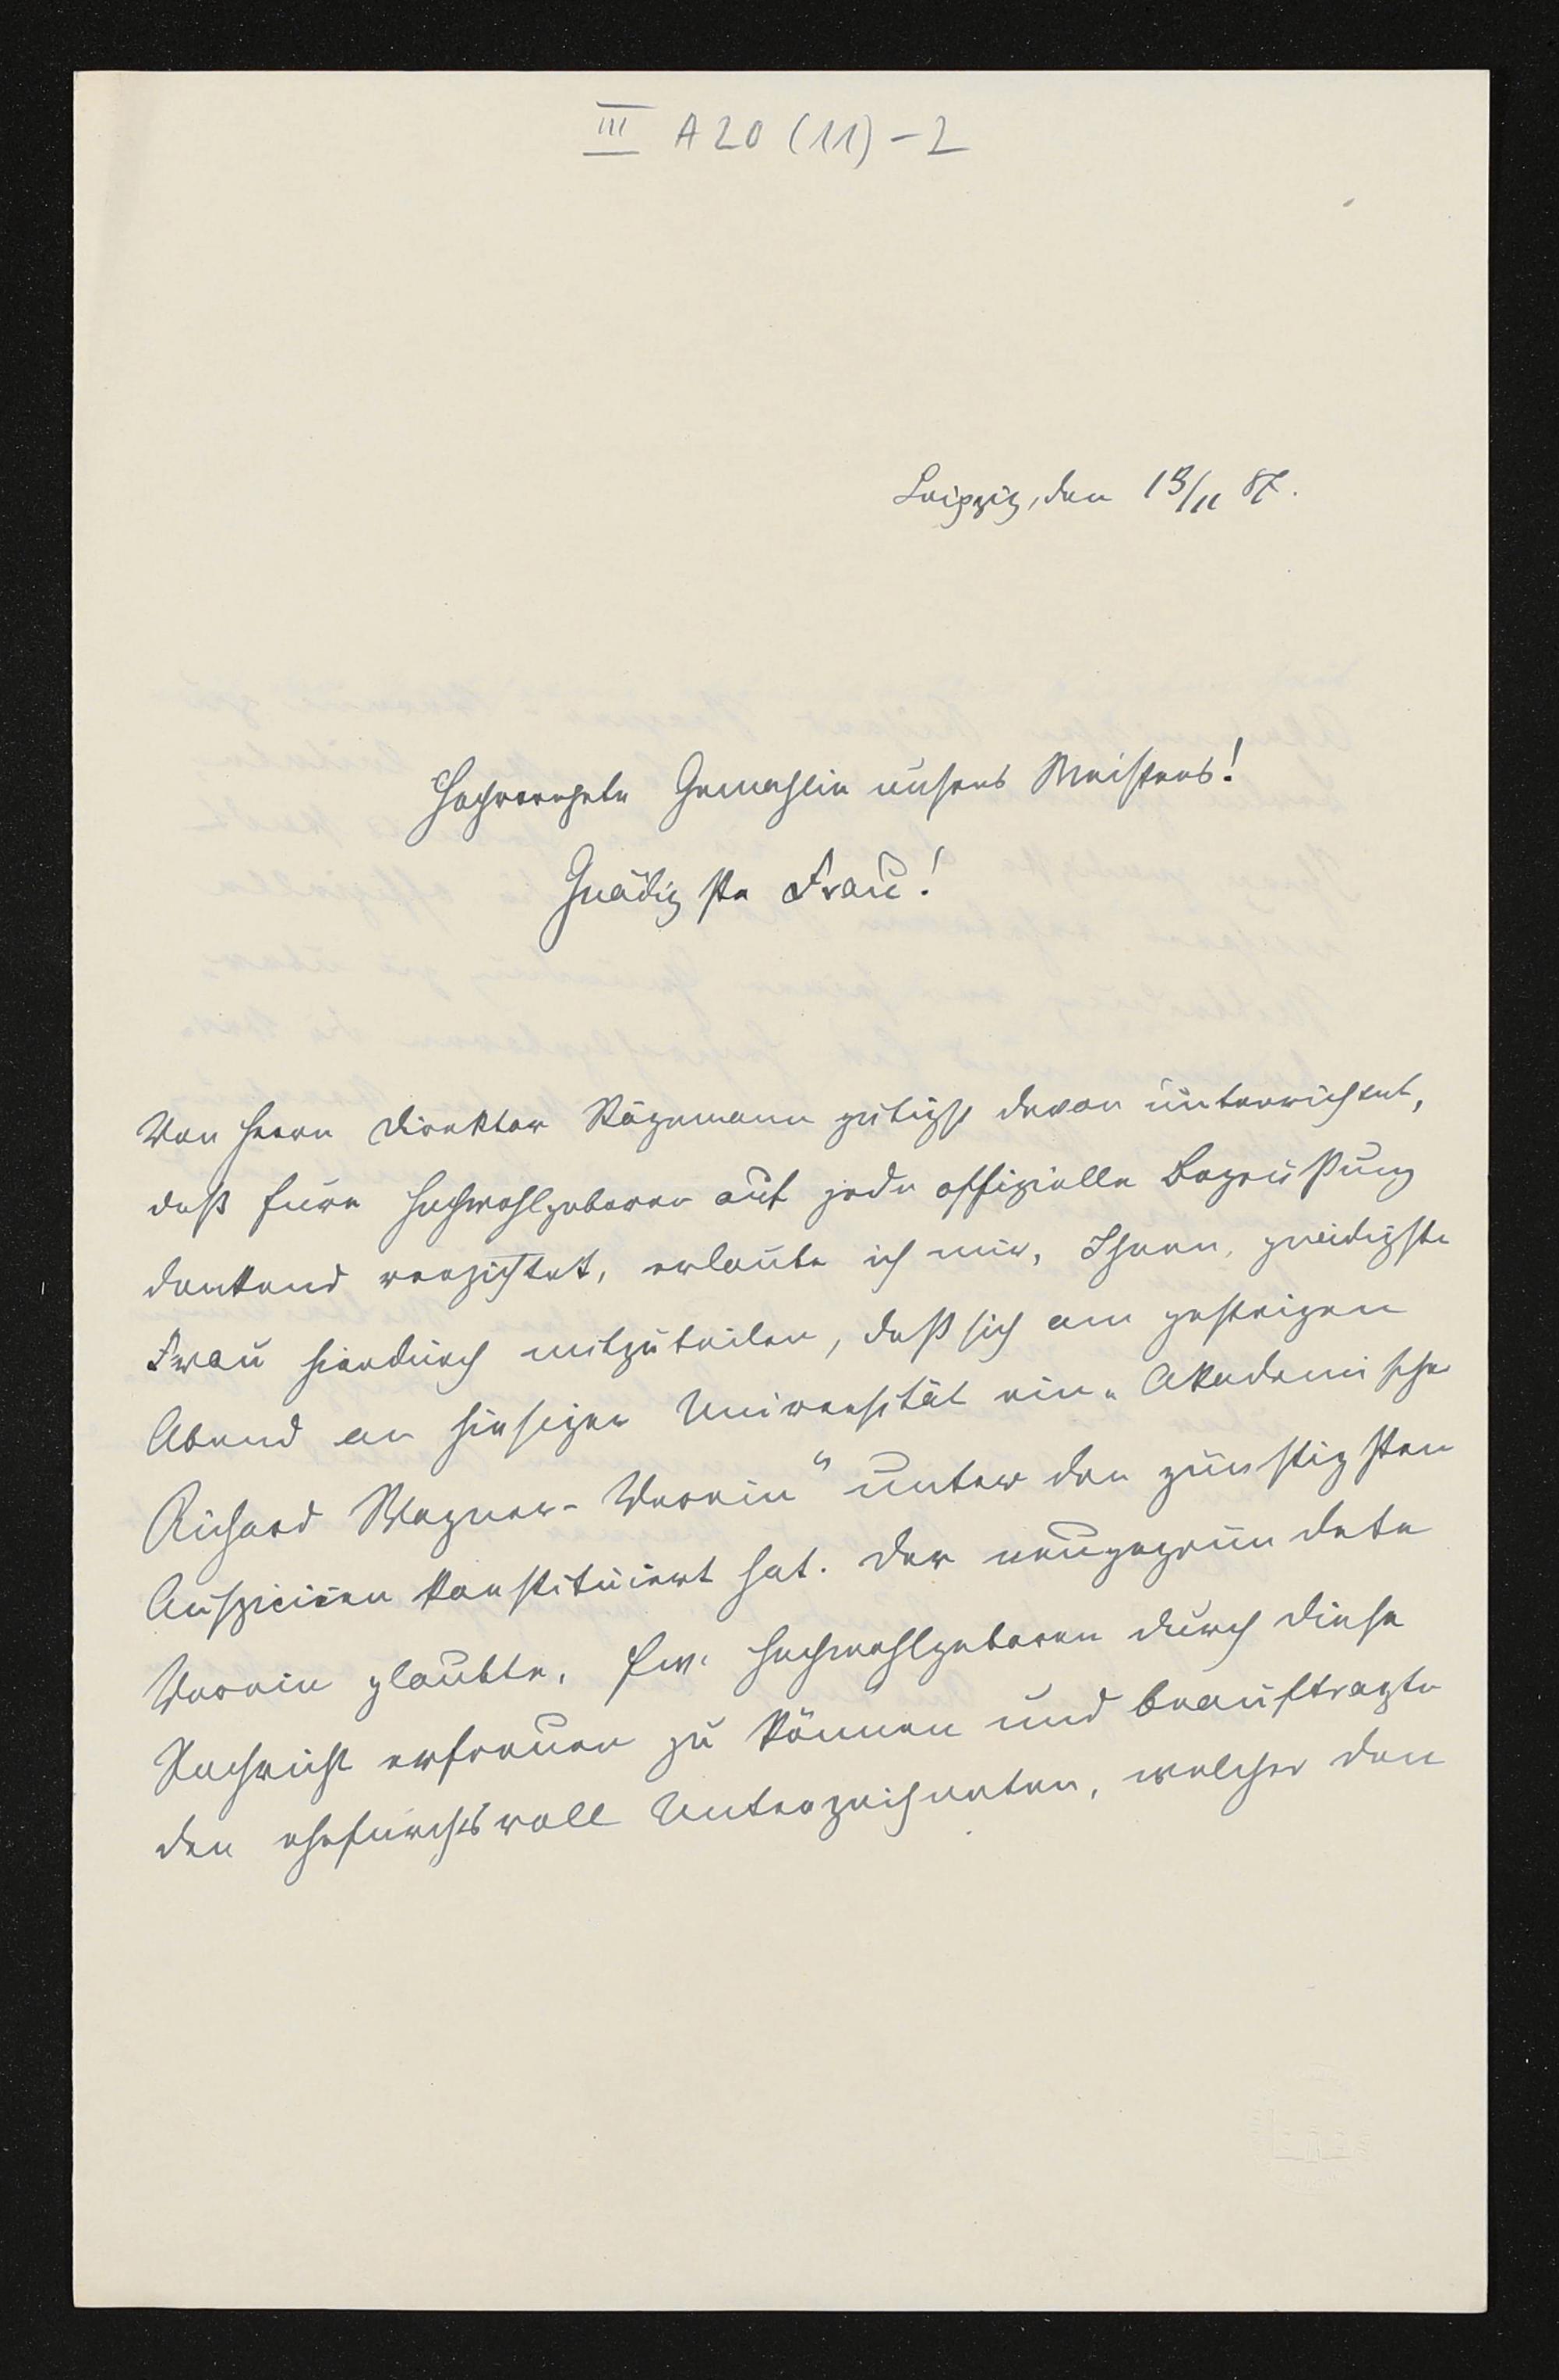 III A 20 (11) - 2
Leipzig, den 13/11 87.
Hochverehrte Gemahlin unseres Meisters!
Gnädigste Frau!
Von Herrn Direktor Stägemann gütigst davon unterrichtet,
daß Eure Hochwohlgeboren auf jede offizielle Begrüßung
dankend verzichtet, erlaube ich mir, Ihnen, gnädigste
Frau hierdurch mitzuteilen, daß sich am gestrigen
Abend an hiesiger Universität ein „Akademischer
Richard Wagner-Verein“ unter den günstigsten
Auspicien konstituiert hat. Der neugegründete
Verein glaubte, Ew. Hochwohlgeboren durch diese
Nachricht erfreuen zu können und beauftragte
den ehrfurchtsvoll Unterzeichneten, welcher den